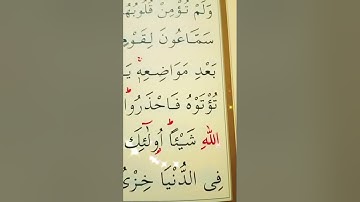 وَلَمْ تُؤْمِنْ قُلُوبُهُ
سَمَّاعُونَ لِقَوْمٍ
بَعْدِ مَوَاضِعِهٖ
تُؤْتَوْهُ فَاحْذَرُوا
اللّٰهِ شَيْئًا اُولٰٓئِكَ
فِي الدُّنْيَا خِزْىٌ